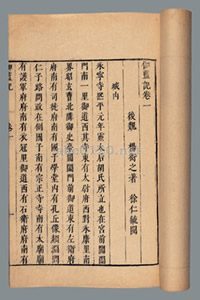 伽藍記卷一
後魏 楊衒之著 徐仁毓閱
城内
永寧寺熙平元年靈太后胡氏所立也在宮前閶闔
門南一里御道西其寺東有太尉府西對永康里南
界昭玄曹北鄰御史臺閶闔門前御道東有左衛
府南有司徒府南有國子學堂內有孔丘像顏淵問
仁子路問政在側國子南有宗正寺寺南有太廟廟
有護軍府府南有衣冠里御道西有右衛府府南有